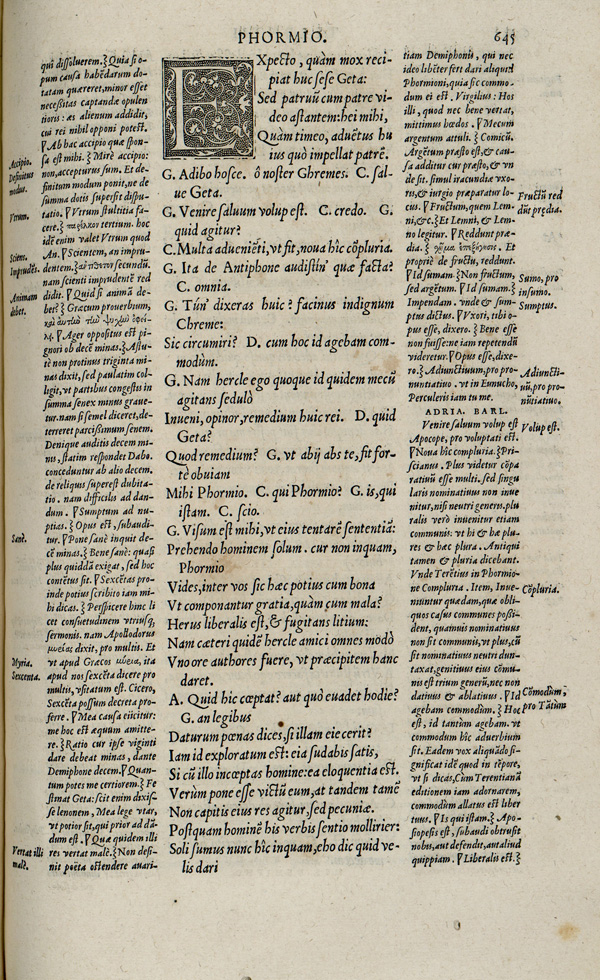 PHORMIO.
645
qui dissoluerem.} Quia si o-
pum causa habẽdarum do-
tatam quæreret, minor esset
necessitas captandæ opulen
tioris: æs alienum addidit,
cui rei nihil opponi potest.
Ab hac accipio quæ spon-
sa est mihi.} Mirè accipio:
non, accepturus sum. Et de-
finitum modum ponit, ne de
summa dotis supersit dispu-
tatio. Vtrum stultitia fa-
cere.} tertium. hoc
idẽ enim valet Vtrum quod
An. Scientem, an impru-
dentem.} secundũ.
nam scienti imprudentẽ red
didit. Quid si animã de-
bet? Græcum prouerbium,
Ager oppositus est pi-
gnori ob decẽ minas.} Astu-
tè non protinus triginta mi-
nas dixit, sed paulatim col-
ligit, vt partibus congestis in
summa senex minus graue-
tur. nam si semel diceret, de-
terreret parcissimum senem.
Denique auditis decem mi-
nis, statim respondet Dabo.
conceduntur ab alio decem.
de reliquis superest dubita-
tio. nam difficilis ad dan-
dum. Sumptum ad nu-
ptias.} Opus est, subaudi-
tur. Pone sanè inquit de-
cẽ minas.} Bene sanè: quasi
plus quiddã exigat, sed hoc
contẽtus sit. Sexcẽtas pro-
inde potius scribito iam mi-
hi dicas. Perspicere hinc li
cet consuetudinem vtriusq;
sermonis. nam Apollodorus
dixit, pro multis. Et
vt apud Græcos ita
apud nos sexcẽta dicere pro
multis, vsitatum est. Cicero,
Sexcẽta possum decreta pro-
ferre. Mea causa eiicitur:
me hoc est æquum amitte-
re.} Ratio cur ipse viginti
dare debeat minas, dante
Demiphone decem. Quan-
tum potes me certiorem.} Fe
stinat Geta: scit enim dixis-
se lenonem, Mea lege vtar,
vt potior sit, qui prior ad dã-
dum est. Quæ quidem illi
res vertat malè.} Non desi-
nit poëta ostendere auari-
Accipio.
Definitus
modus.
Vtrum.
Sciens.
Imprudẽs.
Animam
debet.
Sanè.
Myria.
Sexcenta.
Vertat illi
malè.
EXpecto, quàm mox reci-
piat huc sese Geta:
Sed patruũ cum patre vi-
deo astantem: hei mihi,
Quàm timeo, aduẽtus hu
ius quò impellat patrẽ.
G. Adibo hosce. ô noster Chremes. C. sal-
ue Geta.
G. Venire saluum volup est. C. credo. G.
quid agitur?
C. Multa adueniẽti, vt fit, noua hîc cõpluria.
G. Ita de Antiphone audistin' quæ facta?
C. omnia.
G. Tún' dixeras huic? facinus indignum
Chreme:
Sic circumiri? D. cum hoc id agebam com-
modùm.
G. Nam hercle ego quoque id quidem mecũ
agitans sedulò
Inueni, opinor, remedium huic rei. D. quid
Geta?
Quod remedium? G. vt abij abs te, fit for-
tè obuiam
Mihi Phormio. C. qui Phormio? G. is, qui
istam. C. scio.
G. Visum est mihi, vt eius tentarẽ sententiã:
Prehendo hominem solum. cur non inquam,
Phormio
Vides, inter vos sic hæc potius cum bona
Vt componantur gratia, quàm cum mala?
Herus liberalis est, & fugitans litium:
Nam cæteri quidẽ hercle amici omnes modò
Vno ore authores fuere, vt præcipitem hanc
daret.
A. Quid hic cœptat? aut quò euadet hodie?
G. an legibus
Daturum pœnas dices, si illam eiecerit?
Iam id exploratum est: eia sudabis satis,
Si cũ illo incœptas homine: ea eloquentia est.
Verùm pone esse victũ eum, at tandem tamẽ
Non capitis eius res agitur, sed pecuniæ.
Postquam hominẽ his verbis sentio mollirier:
Soli sumus nunc hîc inquam, eho dic quid ve-
lis dari
tiam Demiphonis, qui nec
ideo libẽter fert dari aliquid
Phormioni, quia sic commo-
dum ei est. Virgilius: Hos
illi, quod nec bene vertat,
mittimus hœdos. Mecum
argentum attuli.} Comicũ.
Argẽtum præsto est, & cau-
sa additur cur præsto, & vn
de sit. simul iracundiæ vxo-
ris, & iurgio præparatur lo-
cus. Fructum, quem Lem-
ni, &c.} Et Lemni, & Lem-
no legitur. Reddunt præ-
dia.} Et
propriè de fructu, reddunt.
Id sumam.} Non fructum,
sed argẽtum. Id sumam.}
Impendam. vnde & sum-
ptus dictus. Vxori, tibi o-
pus esse, dixero.} Bene esse
non fuisse: ne iam repetendũ
videretur. Opus esse, dixe-
ro.} Adiunctiuum, pro pro-
nuntiatiuo. vt in Eunucho,
Perculeris iam tu me.
ADRIA. BARL.
Venire saluum volup est
Apocope, pro voluptati est.
Noua hîc compluria.} Pri-
scianus. Plus videtur cõpa
ratiuũ esse multi. sed singu
laris nominatiuus non inue
nitur, nisi neutri generis. plu
ralis verò inuenitur etiam
communis: vt hi & hæ plu-
res & hæc plura. Antiqui
tamen & pluria dicebant.
Vnde Terẽtius in Phormio-
ne Compluria. Item, Inue-
niuntur quædam, quæ obli-
quos casus communes possi-
dent, quamuis nominatiuus
non sit communis, vt plus, cũ
sit nominatiuus neutri dun-
taxat, genitiuus eius cõmu-
nis est trium generũ, nec non
datiuus & ablatiuus. Id
agebam commodùm.} Hoc
est, id tantùm agebam. vt
commodum hîc aduerbium
sit. Eadem vox aliquãdo si-
gnificat idẽ quod in tẽpore,
vt si dicas, Cùm Terentianã
editionem iam adornarem,
commodùm allatus est liber
tuus. Is qui istam.} Apo-
siopesis est, subaudi obtrusit
nobis, aut defendit, aut aliud
quippiam. Liberalis est.}
Fructũ red
dũt prædia.
Sumo, pro
insumo.
Sumptus.
Adiuncti-
uũ, pro pro-
nũtiatiuo.
Volup est.
Cõpluria.
Cõmodùm,
pro Tãtùm